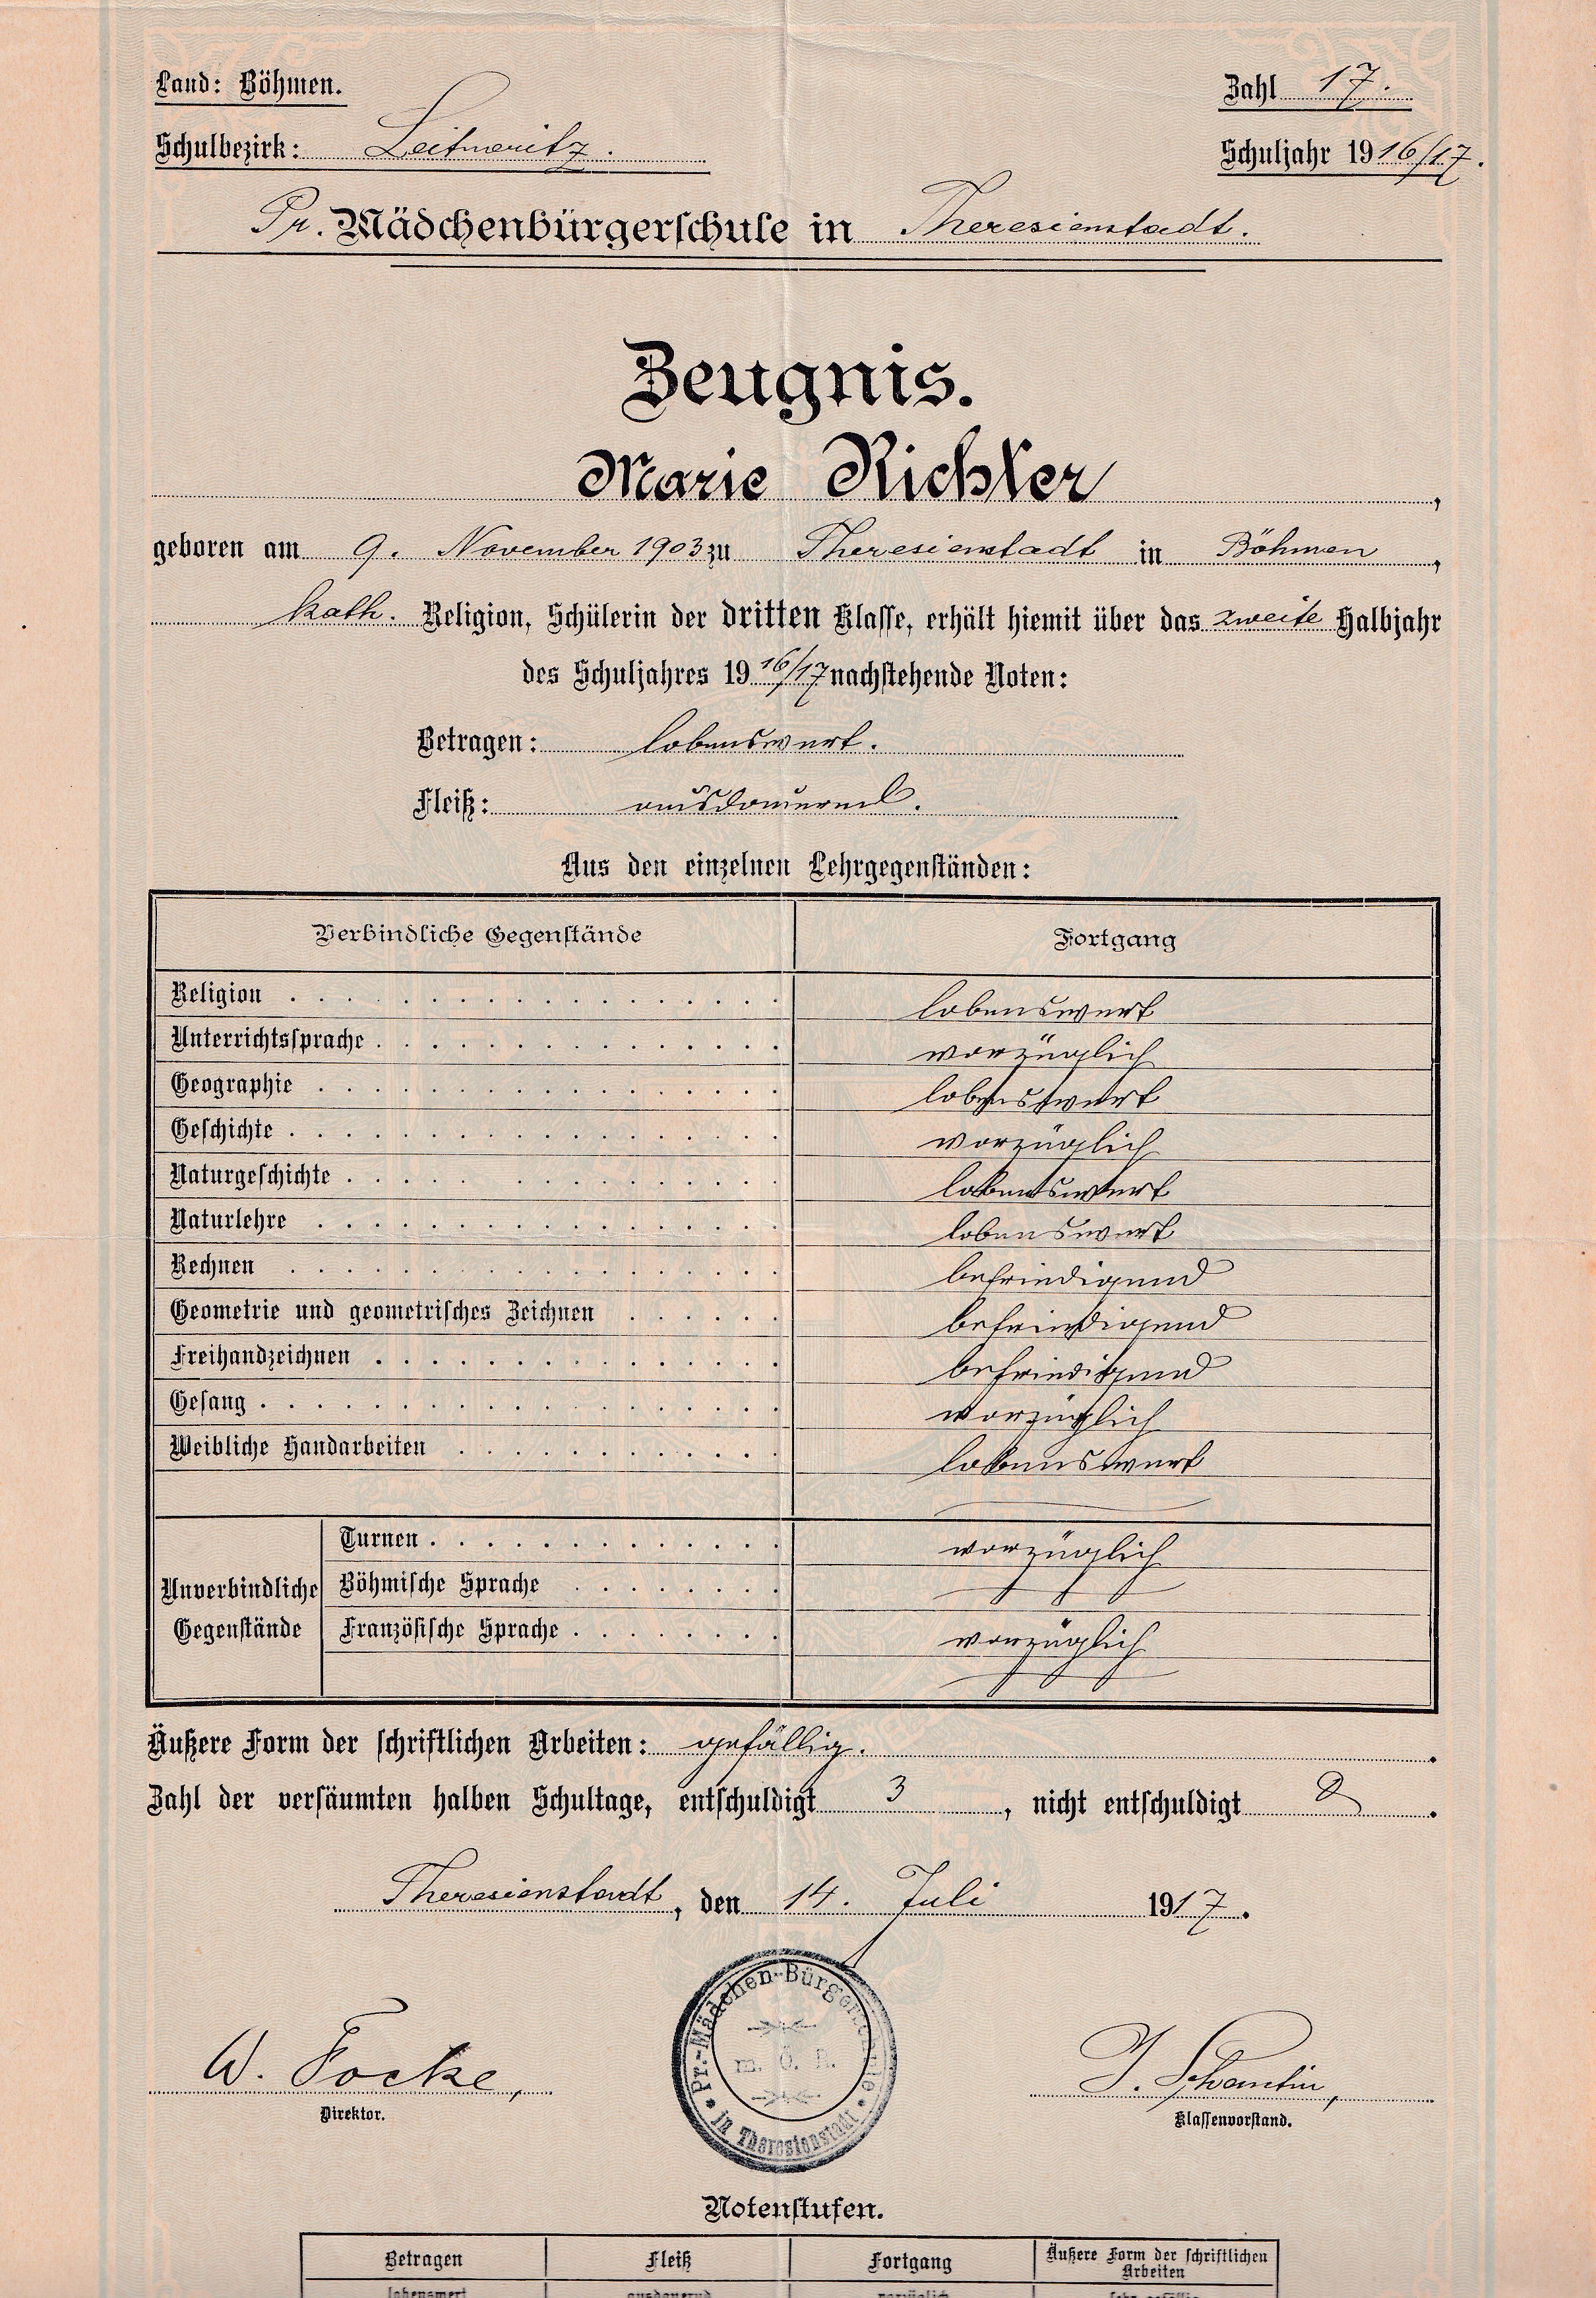 Land: Böhmen.
Zahl 17.
Schulbezirk: Leitmeritz.
Schuljahr 1916/17.
Pr. Mädchenbürgerschule in Theresienstadt.
Zeugnis.
Marie Richter,
geboren am 9. November 1903 zu Theresienstadt in Böhmen,
kath. Religion, Schülerin der dritten Klasse, erhält hiemit über das zweite Halbjahr
des Schuljahres 1916/17 nachstehende Noten:
Betragen: lobenswert.
Fleiß: ausdauernd.
Aus den einzelnen Lehrgegenständen:
Verbindliche Gegenstände Fortgang
Religion lobenswert
Unterrichtssprache vorzüglich
Geographie lobenswert
Geschichte vorzüglich
Naturgeschichte lobenswert
Naturlehre lobenswert
Rechnen befriedigend
Geometrie und geometrisches Zeichnen befriedigend
Freihandzeichnen befriedigend
Gesang vorzüglich
Weibliche Handarbeiten lobenswert
Unverbindliche Gegenstände
Turnen vorzüglich
Böhmische Sprache
Französische Sprache vorzüglich
Äußere Form der schriftlichen Arbeiten: gefällig.
Zahl der versäumten halben Schultage, entschuldigt 3, nicht entschuldigt 0.
Theresienstadt, den 14. Juli 1917.
Pr.-Mädchen-Bürgerschule
m. Ö. R.
in Theresienstadt
W. Focke,
Direktor.
J.
Klassenvorstand.
Notenstufen.
Betragen Fleiß Fortgang Äußere Form der schriftlichen Arbeiten
lobenswert ausdauernd vorzüglich sehr gefällig